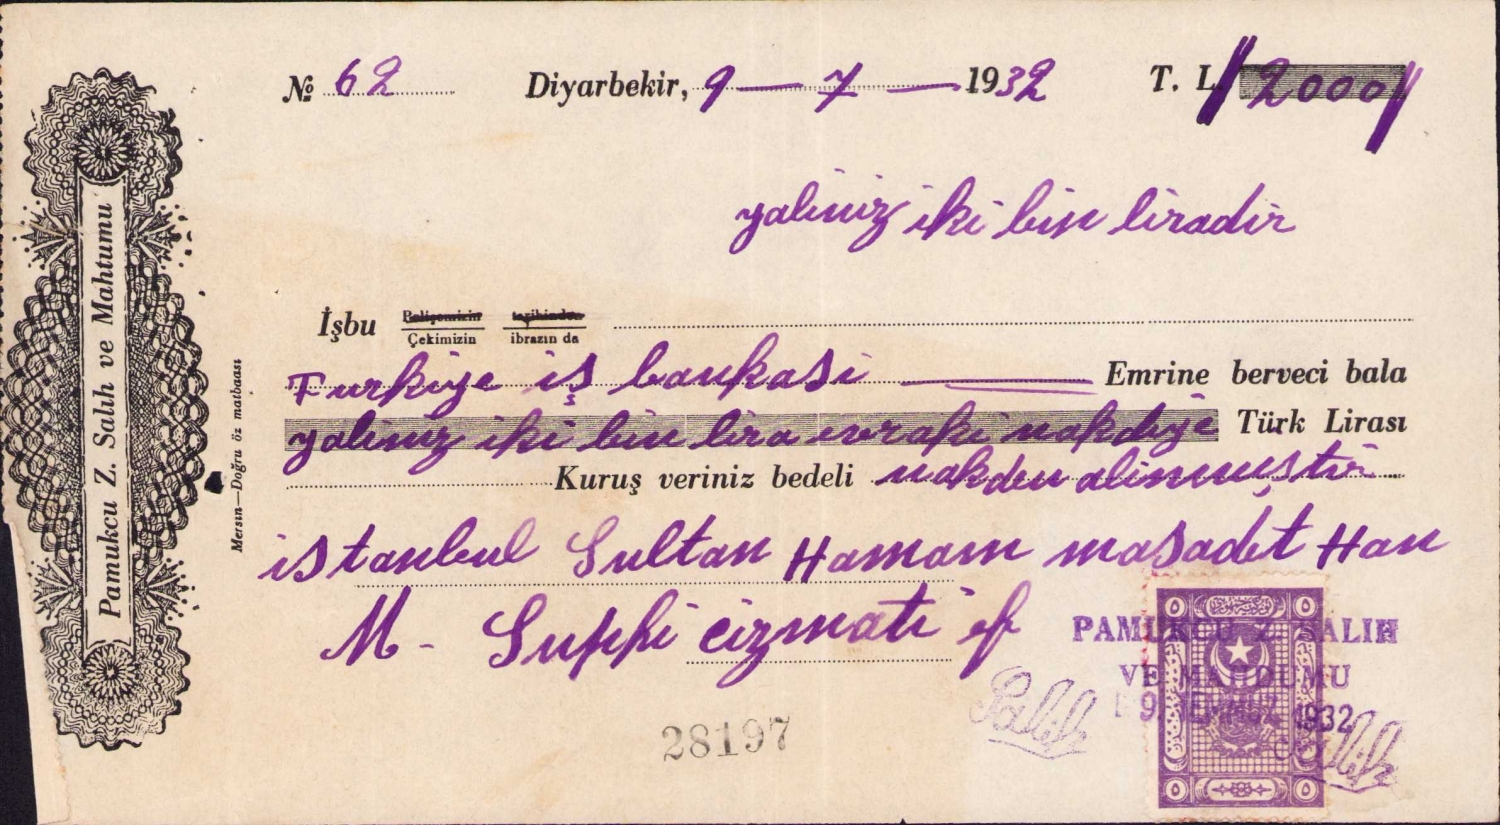 Pamukcu Z. Salıh ve Mahtumu
Mersın—Doğru öz matbaası
№ 62 Diyarbekir, 9 — 7 — 1932 T. L. 2000
yaliniz iki bin liradir
İşbu Poliçemizin tarihinden
Çekimizin ibrazın da
Turkiye iş bankasi — Emrine berveci bala
yaliniz iki bin lira evraki nakdiye Türk Lirası
Kuruş veriniz bedeli nakden alinmıştır
istanbul Sultan Hamam masadet Han
M. Suphi cizmati ef
PAMUKCU Z. SALIH
VE MAHDUMU
9 TEMMUZ 1932
Salih Salih
28197
٥ ٥
٥ ٥